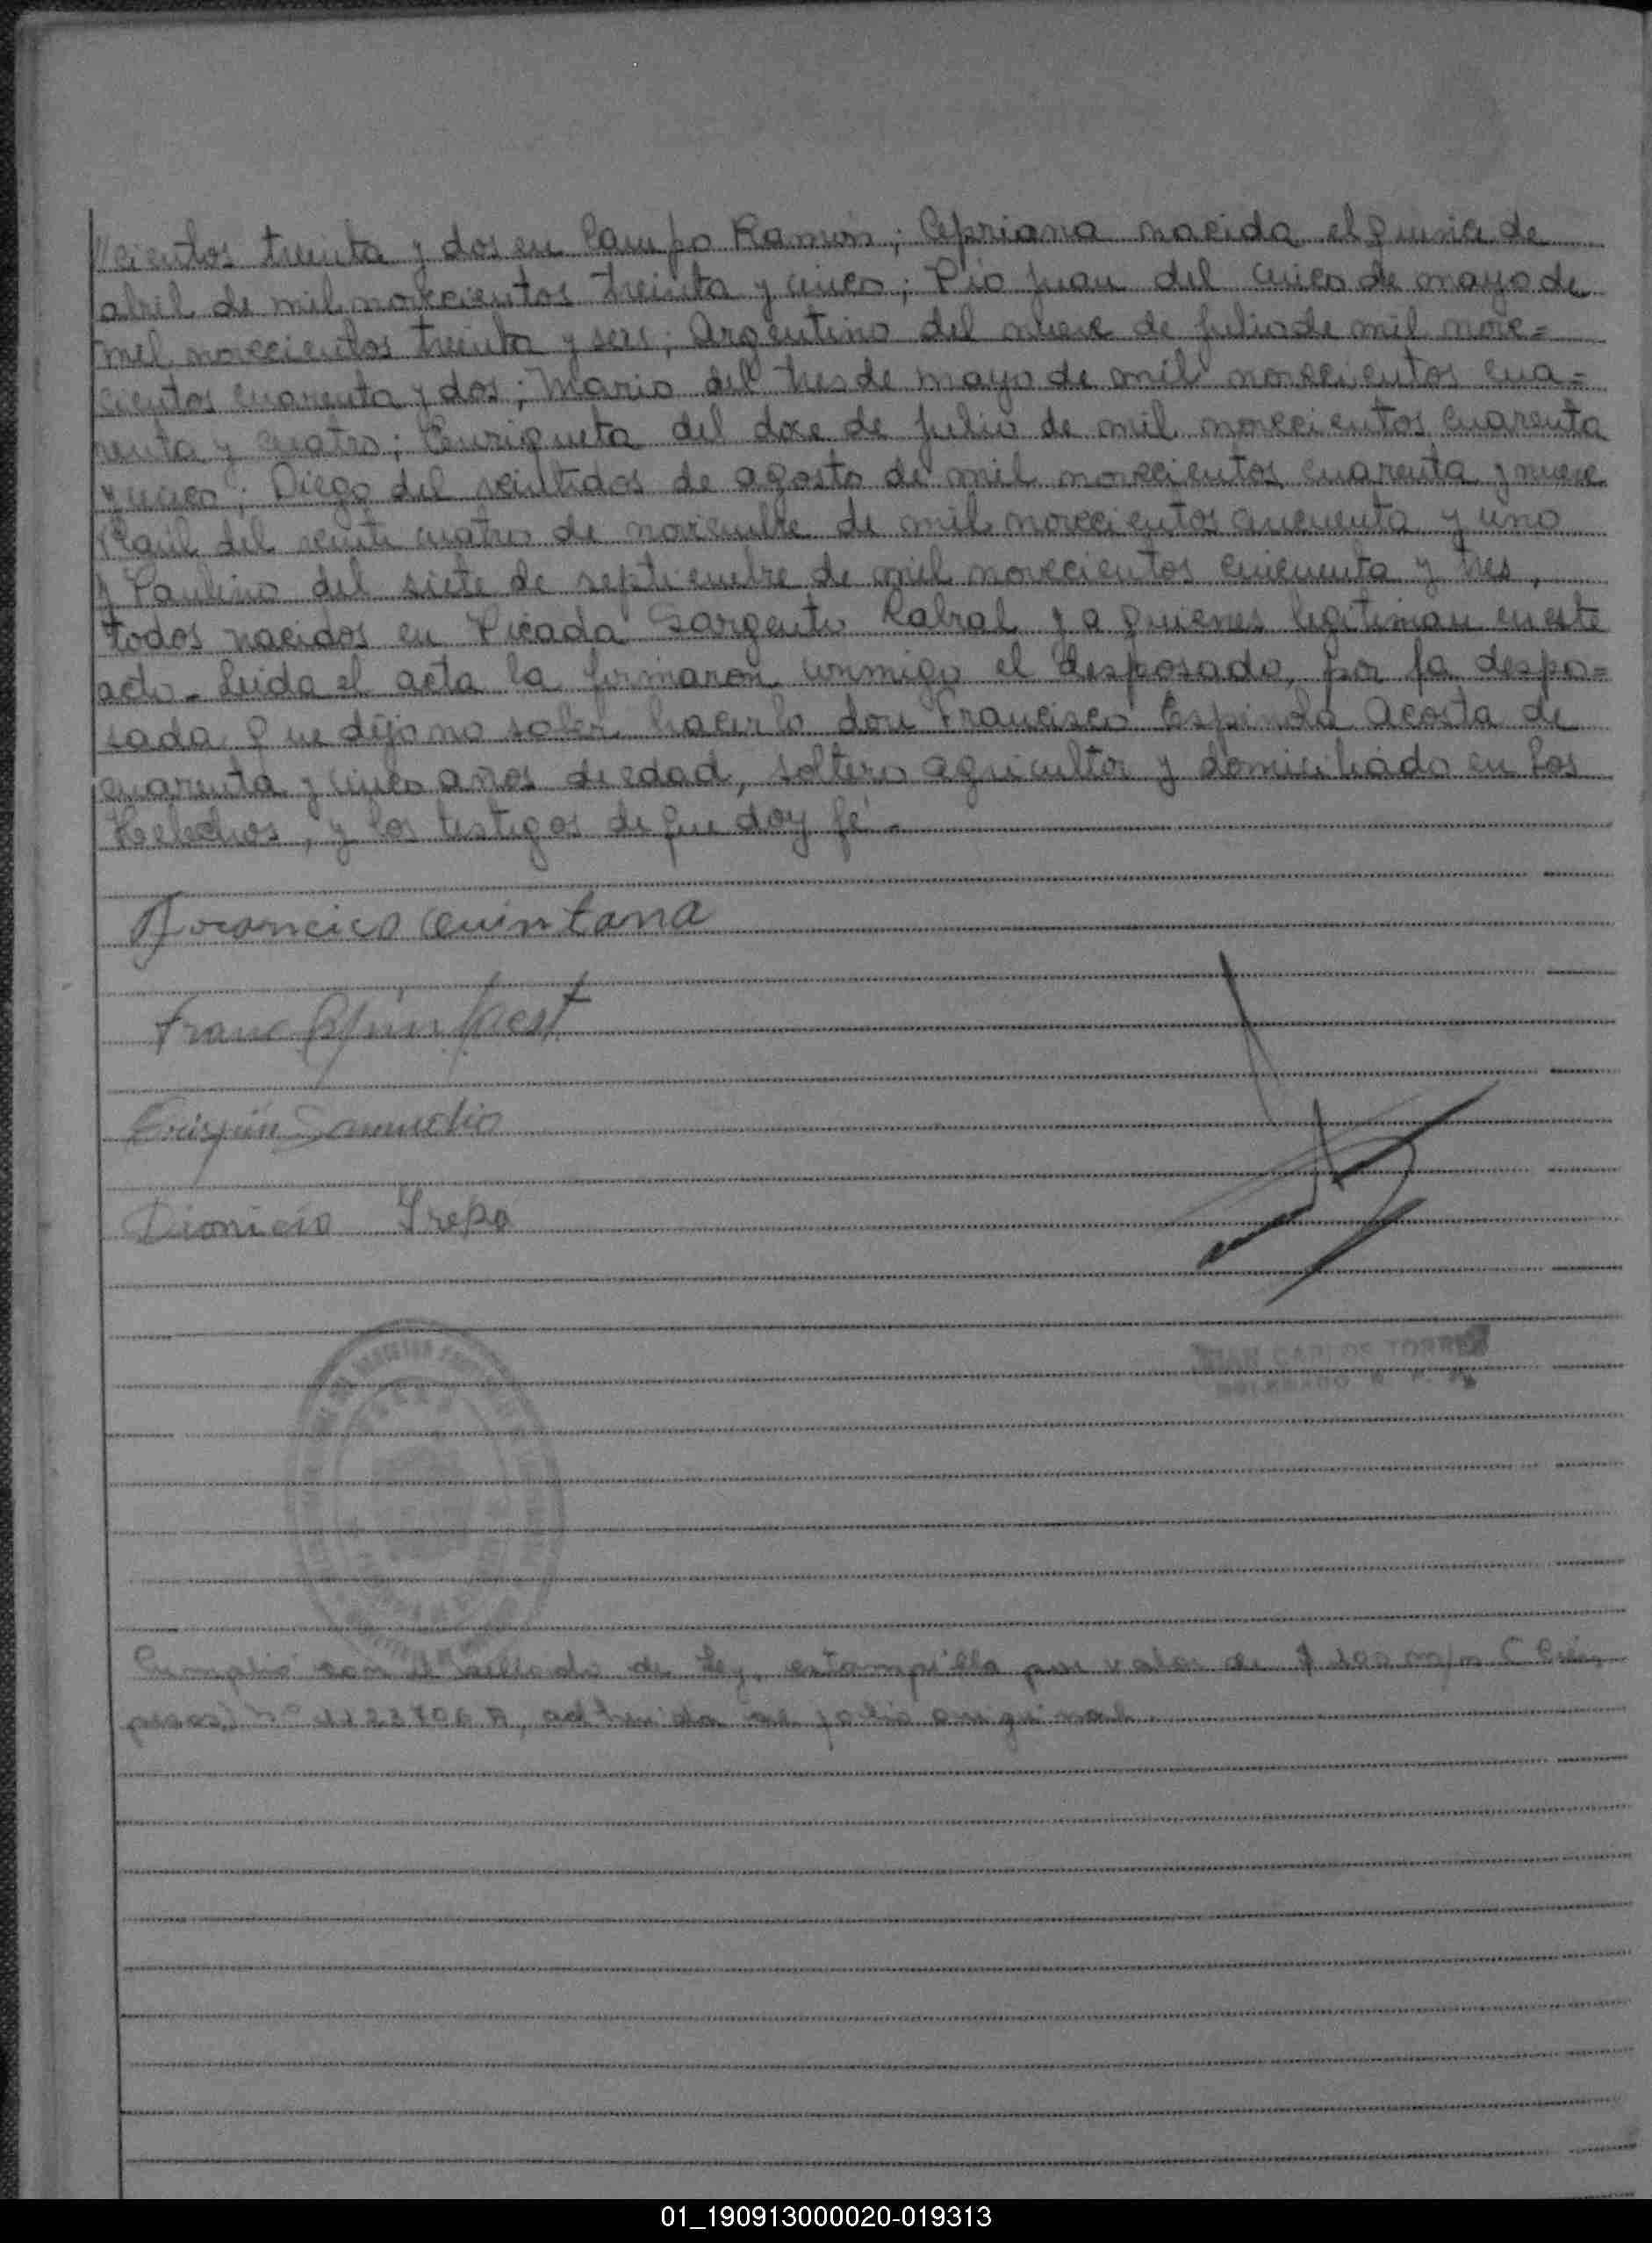 //cientos treinta y dos en Campo Ramón; Cipriana nacida el quince de
abril de mil novecientos treinta y cinco; Pío Juan del cinco de mayo de
mil novecientos treinta y seis; Argentino del nueve de julio de mil nove=
cientos cuarenta y dos; Mario del tres de mayo de mil novecientos cua=
renta y cuatro; Enriqueta del doce de julio de mil novecientos cuarenta
y cinco; Diego del veintidos de agosto de mil novecientos cuarenta y nueve
Raúl del veinte cuatro de noviembre de mil novecientos cincuenta y uno
y Paulino del siete de septiembre de mil novecientos cincuenta y tres,
todos nacidos en Picada Sargento Cabral y a quienes legitiman en este
acto - Leida el acta la firmaron conmigo el desposado, por la despo=
sada que dijo no saber hacerlo don Francisco Espinola Acosta de
cuarenta y cinco años de edad, soltero agricultor y domiciliado en Los
Helechos, y los testigos de que doy fé.-
Quintana
Dionicio
JUAN CARLOS TORRES
Cumplió con el sellado de Ley, estampilla por valor de $ 100 m/n (Cien
pesos) nº adherida al folio original.
01_190913000020-019313